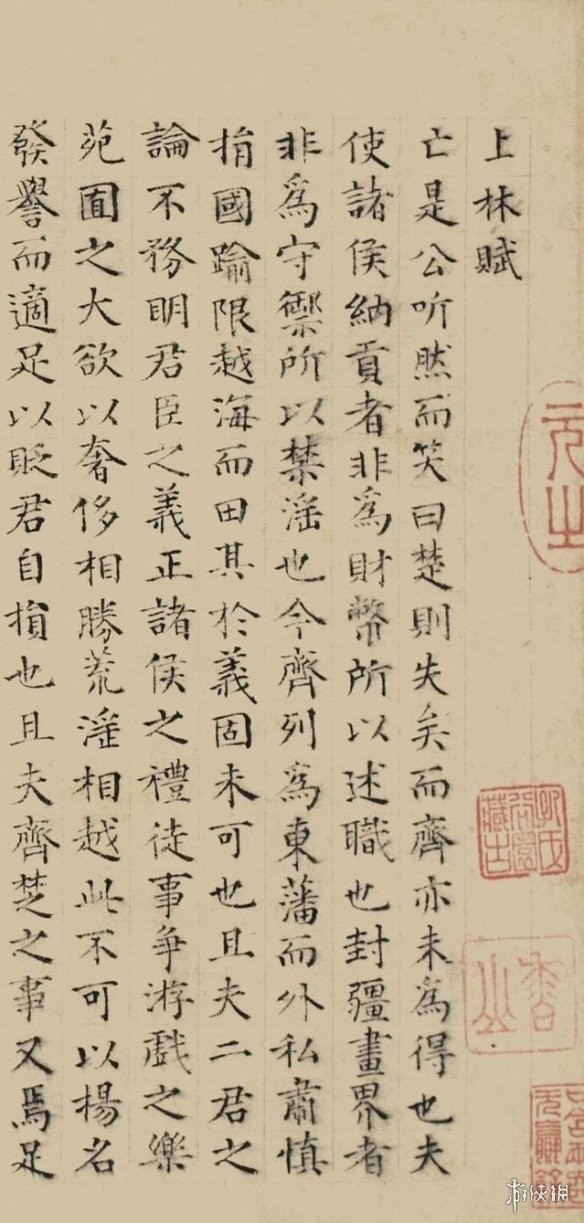 上林賦
亡是公听然而笑曰楚則失矣而齊亦未為得也夫
使諸侯納貢者非為財幣所以述職也封疆畫界者
非為守禦所以禁淫也今齊列為東藩而外私肅慎
捐國踰限越海而田其於義固未可也且夫二君之
論不務明君臣之義正諸侯之禮徒事爭游戲之樂
苑囿之大欲以奢侈相勝荒淫相越此不可以楊名
發譽而適足以貶君自損也且夫齊楚之事又焉足
游侠網